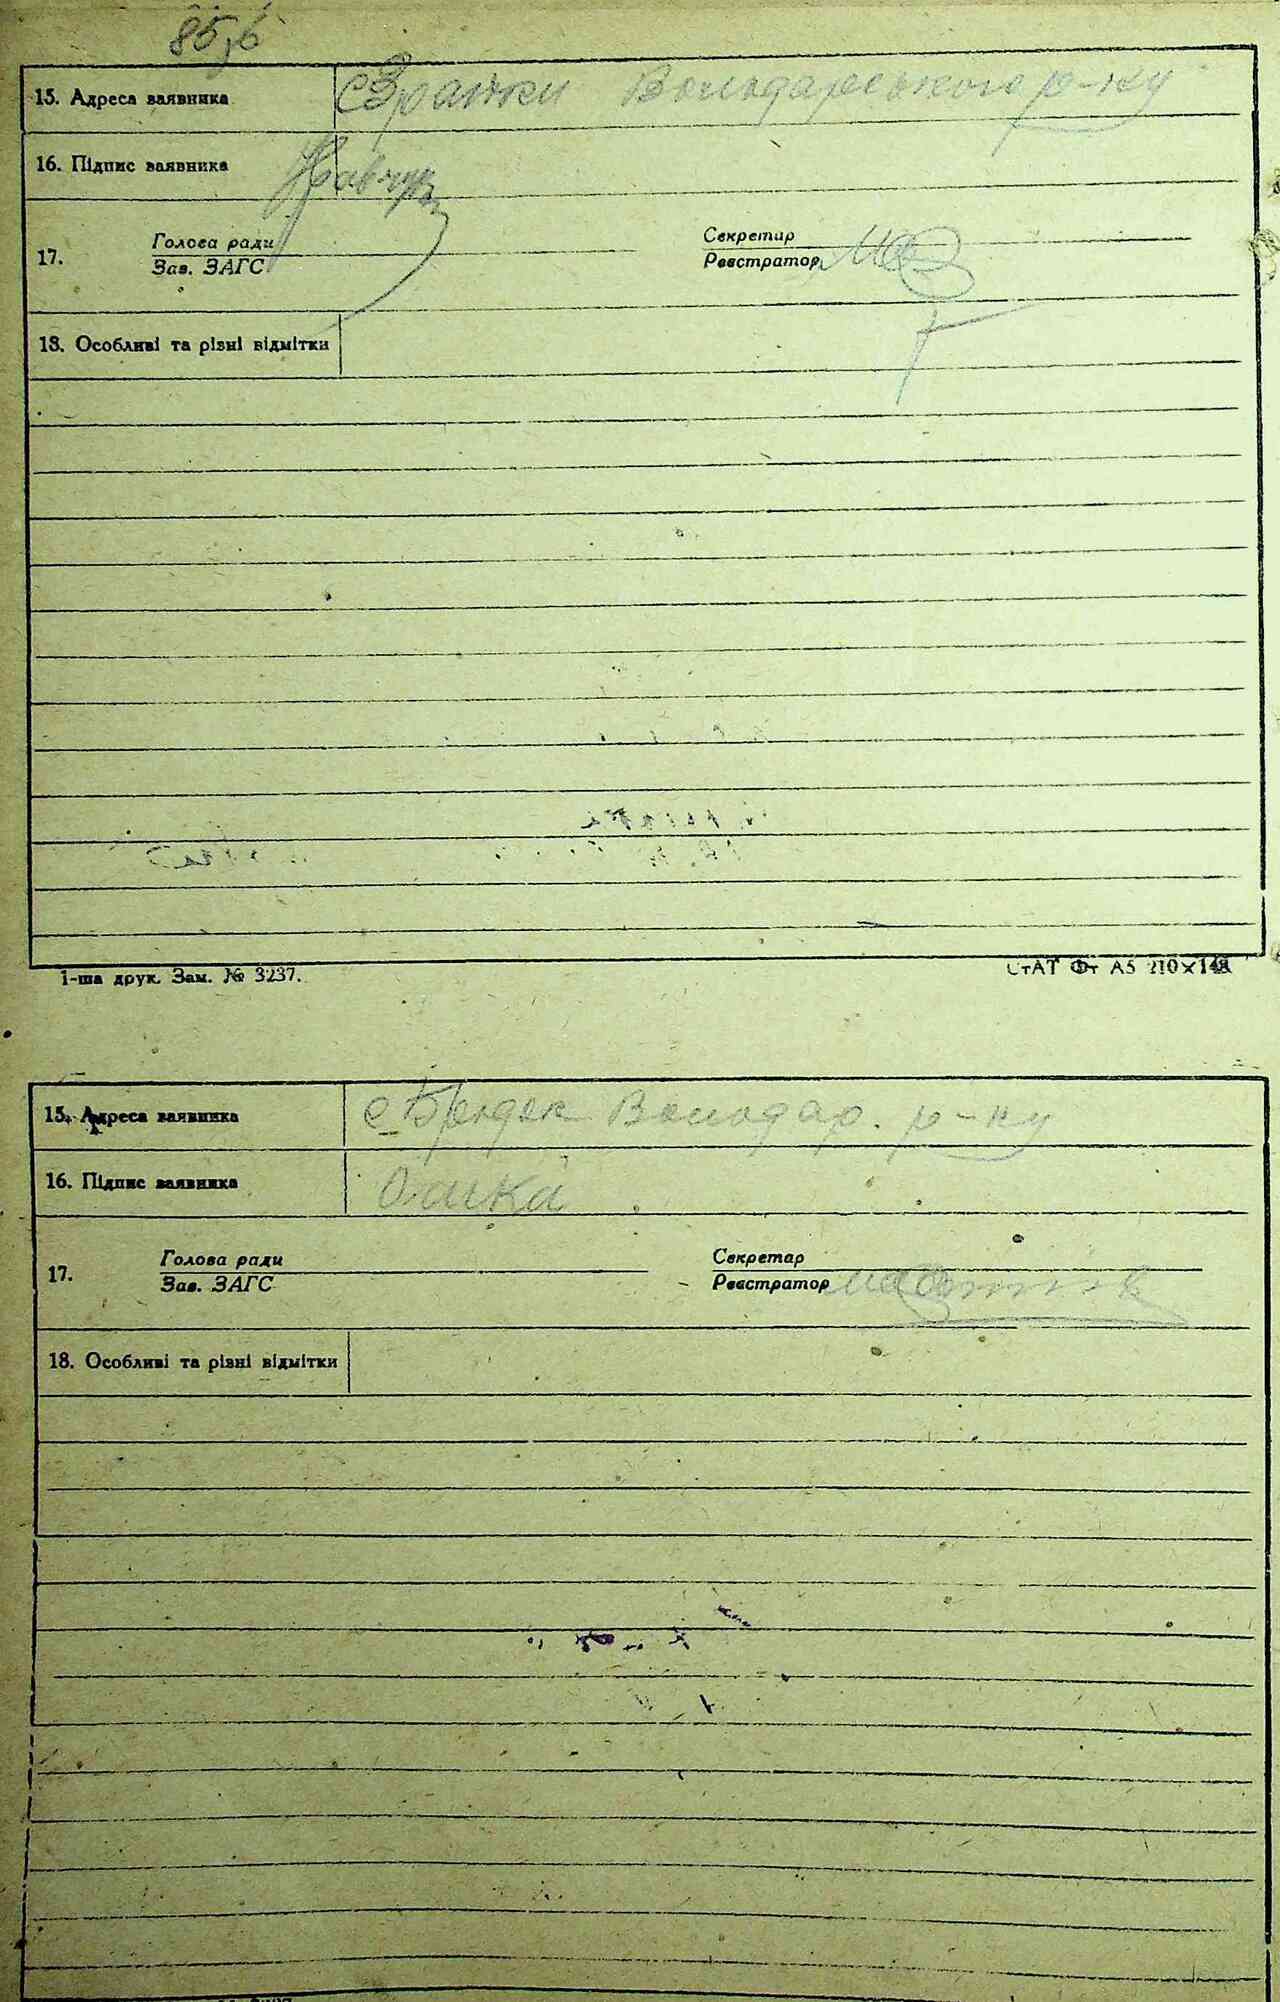 85
15. Адреса заявника с Зрайки Володарського р-ну
16. Підпис заявника Кравчук
Голова ради Секретар
17. Зав. ЗАГС Реєстратор
18. Особливі та різні відмітки
1-ша друк. Зам. № 3237. СтАТ Фт А5 210×148
15. Адреса заявника с Володар. р-ну
16. Підпис заявника
Голова ради Секретар
17. Зав. ЗАГС Реєстратор
18. Особливі та різні відмітки